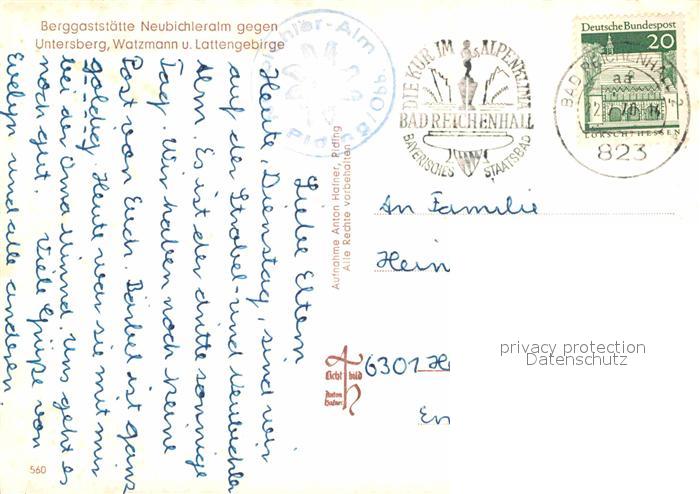 Berggaststätte Neubichleralm gegen
Untersberg, Watzmann u. Lattengebirge
Liebe Eltern
Heute, Dienstag, sind wir
auf der Strobel- und Neubichler
Alm. Es ist der dritte sonnige
Tag. Wir haben noch keine
Post von Euch. Bärbel ist ganz
goldig. Heute war sie mit mir
bei der Oma Minna. Uns geht es
noch gut. Viele Grüße von
Evelyn und alle anderen.
560
Aufnahme Anton Hafner, Piding
Alle Rechte vorbehalten
Licht bild
Anton
Hafner
DIE KUR IM ALPENKLIMA
BAD REICHENHALL
BAYERISCHES STAATSBAD
Deutsche Bundespost
20
LORSCH/HESSEN
BAD REICHENHALL 2
af
823
An Familie
Hein
6301 H
En
privacy protection
Datenschutz